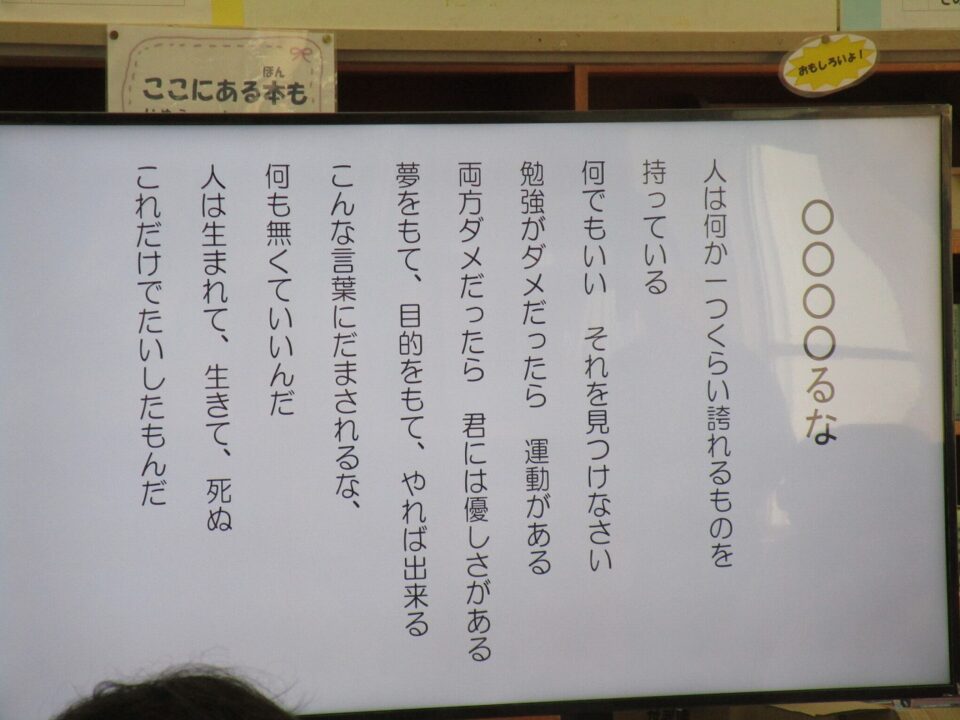 ここにある本も
ぼん
おもしろいよ！
〇〇〇〇るな
人は何か一つくらい誇れるものを
持っている
何でもいい　それを見つけなさい
勉強がダメだったら　運動がある
両方ダメだったら　君には優しさがある
夢をもて、目的をもて、やれば出来る
こんな言葉にだまされるな、
何も無くていいんだ
人は生まれて、生きて、死ぬ
これだけでたいしたもんだ